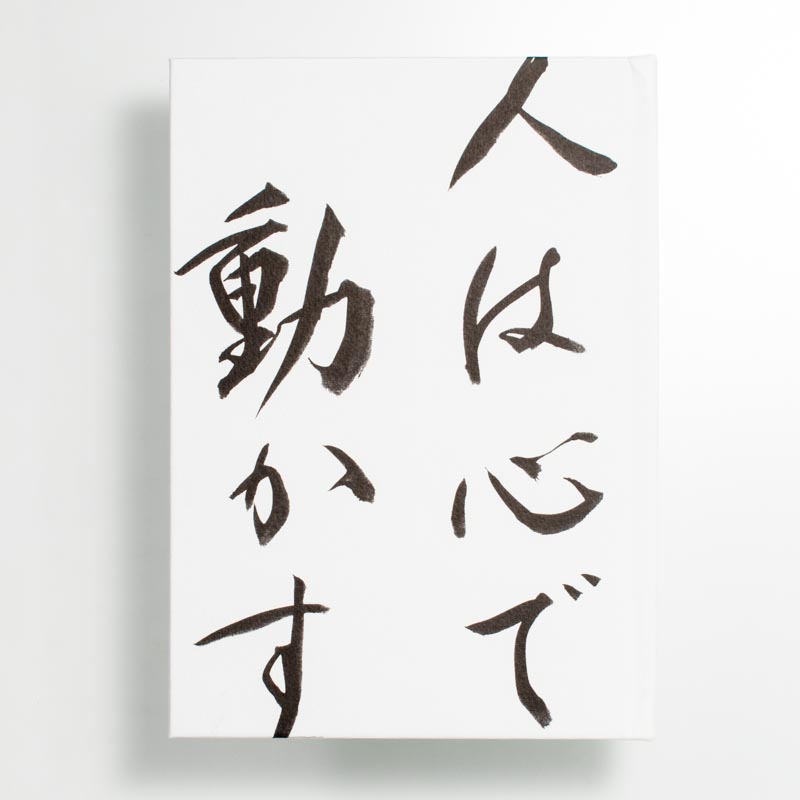 人は心で
動かす